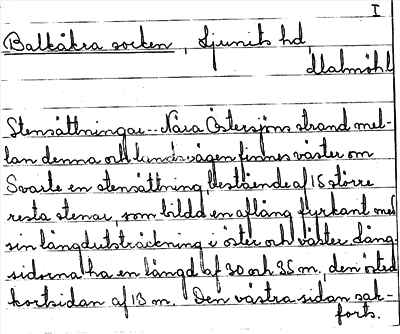 I
Balkåkra socken, Ljunits hd,
Malmöhl
Stensättningar.. Nära Östersjöns strand mel-
lan denna och landsvägen finnes väster om
Svarte en stensättning, bestående af 15 större
resta stenar, som bilda en aflång fyrkant med
sin längdutsträckning i öster och väster. Lång-
sidorna ha en längd af 30 och 35 m, den östra
kortsidan af 13 m. Den västra sidan sak-
forts.